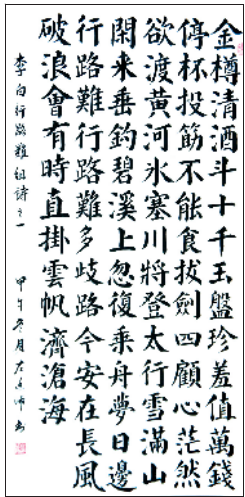 金樽清酒斗十千玉盤珍羞值萬錢
停杯投筯不能食拔劍四顧心茫然
欲渡黃河氷塞川將登太行雪滿山
閑来垂釣碧溪上忽復乘舟夢日邊
行路難行路難多歧路今安在長風
破浪會有時直掛雲帆濟滄海
李白行路難組詩之一 甲午冬月